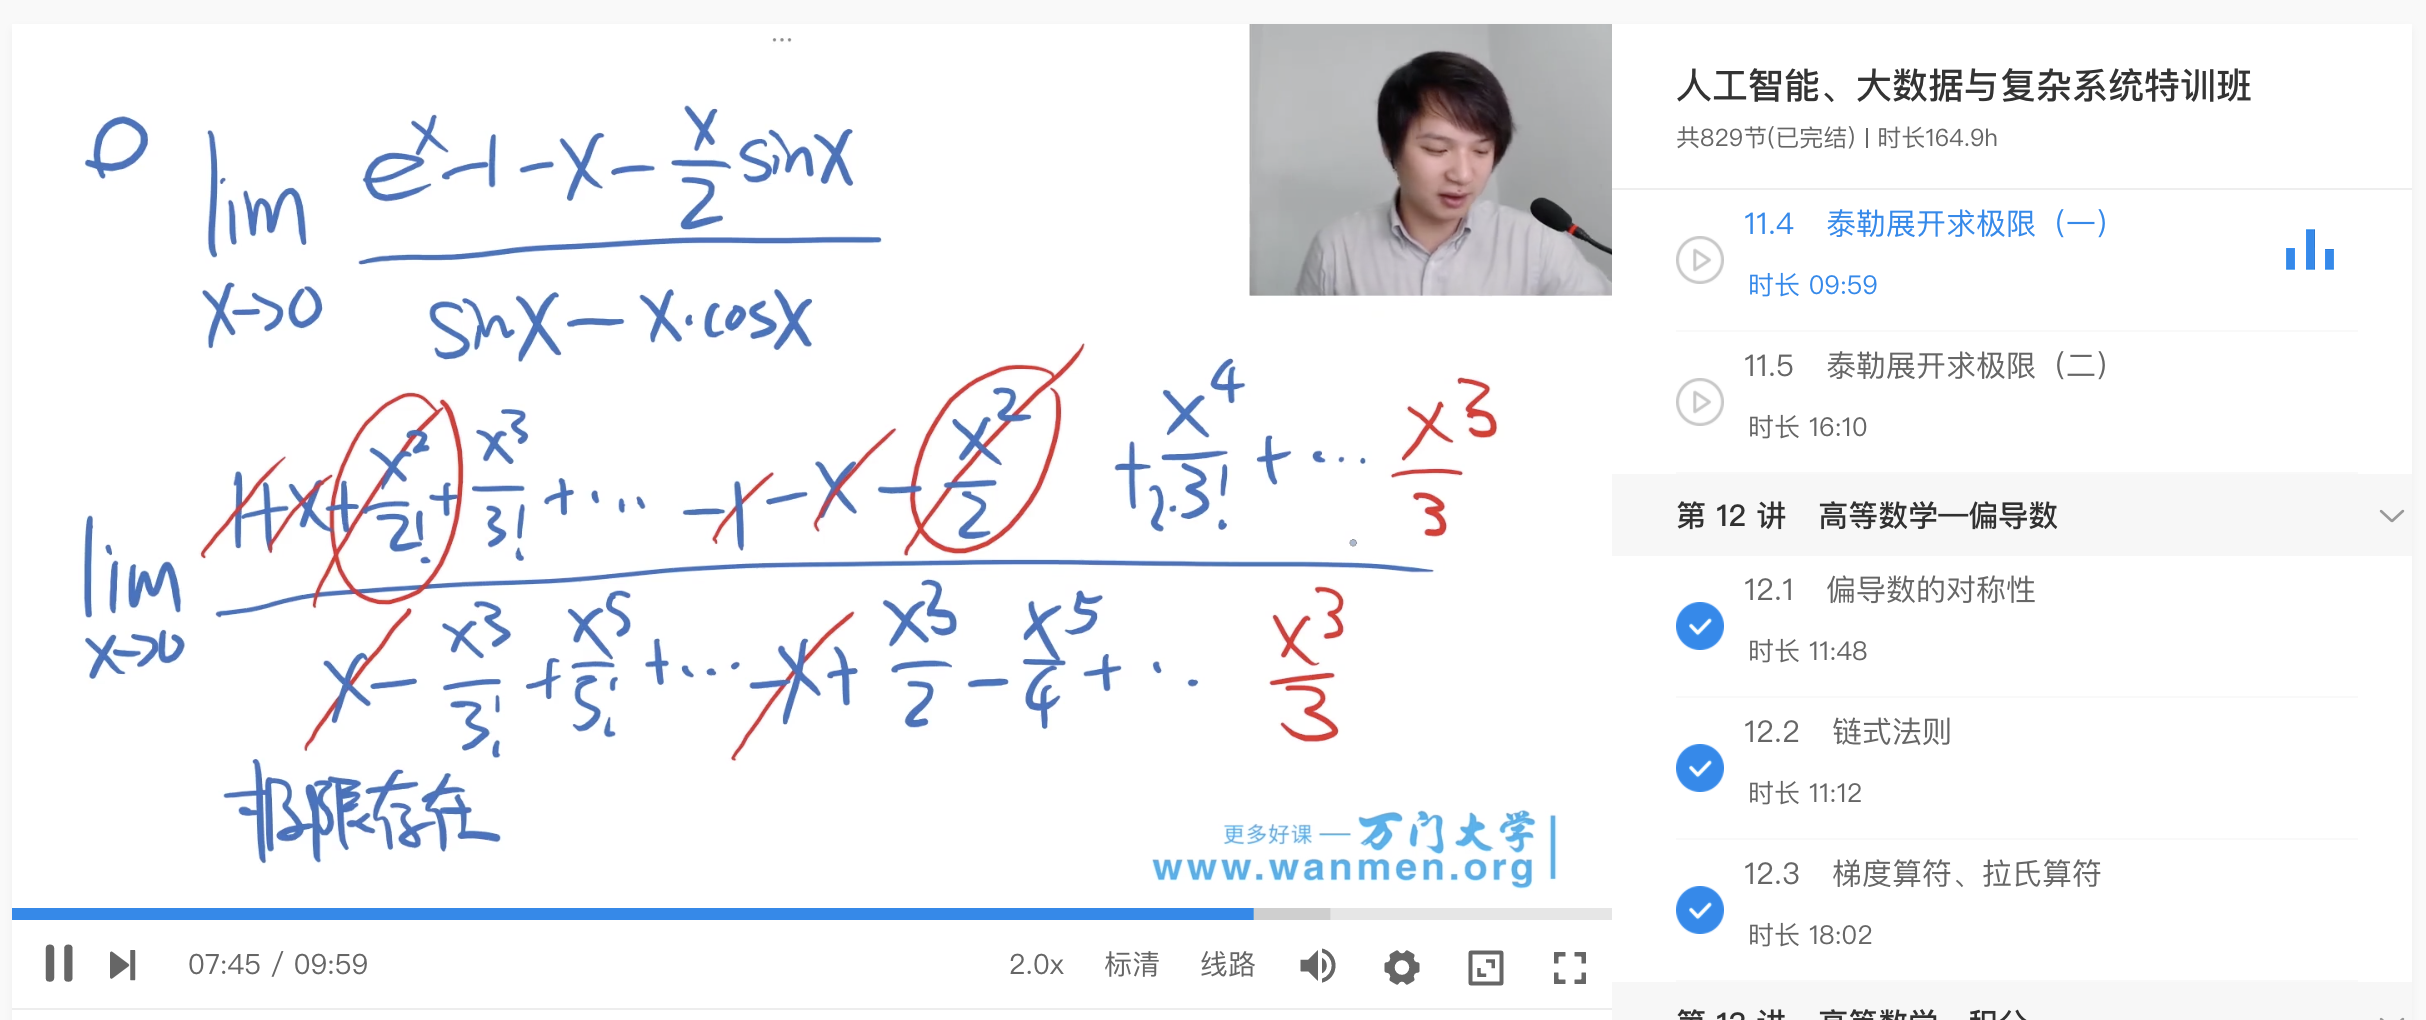 ① lim x→0 (e^x - 1 - x - x/2 sinx) / (sinx - x·cosx)
lim x→0 (1 + x + x²/2! + x³/3! + ... - 1 - x - x²/2 + x⁴/2·3! + ...) / (x - x³/3! + x⁵/5! + ... - x + x³/2 - x⁵/4 + ...)
x³/3
x³/3
极限存在
更多好课 — 万门大学
www.wanmen.org
07:45 / 09:59
2.0x 标清 线路
人工智能、大数据与复杂系统特训班
共829节(已完结) | 时长164.9h
11.4 泰勒展开求极限（一）
时长 09:59
11.5 泰勒展开求极限（二）
时长 16:10
第 12 讲 高等数学—偏导数
12.1 偏导数的对称性
时长 11:48
12.2 链式法则
时长 11:12
12.3 梯度算符、拉氏算符
时长 18:02